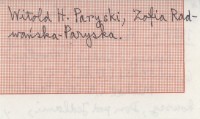 Witold H. Paryski, Zofia Rad-
wańska-Paryska.